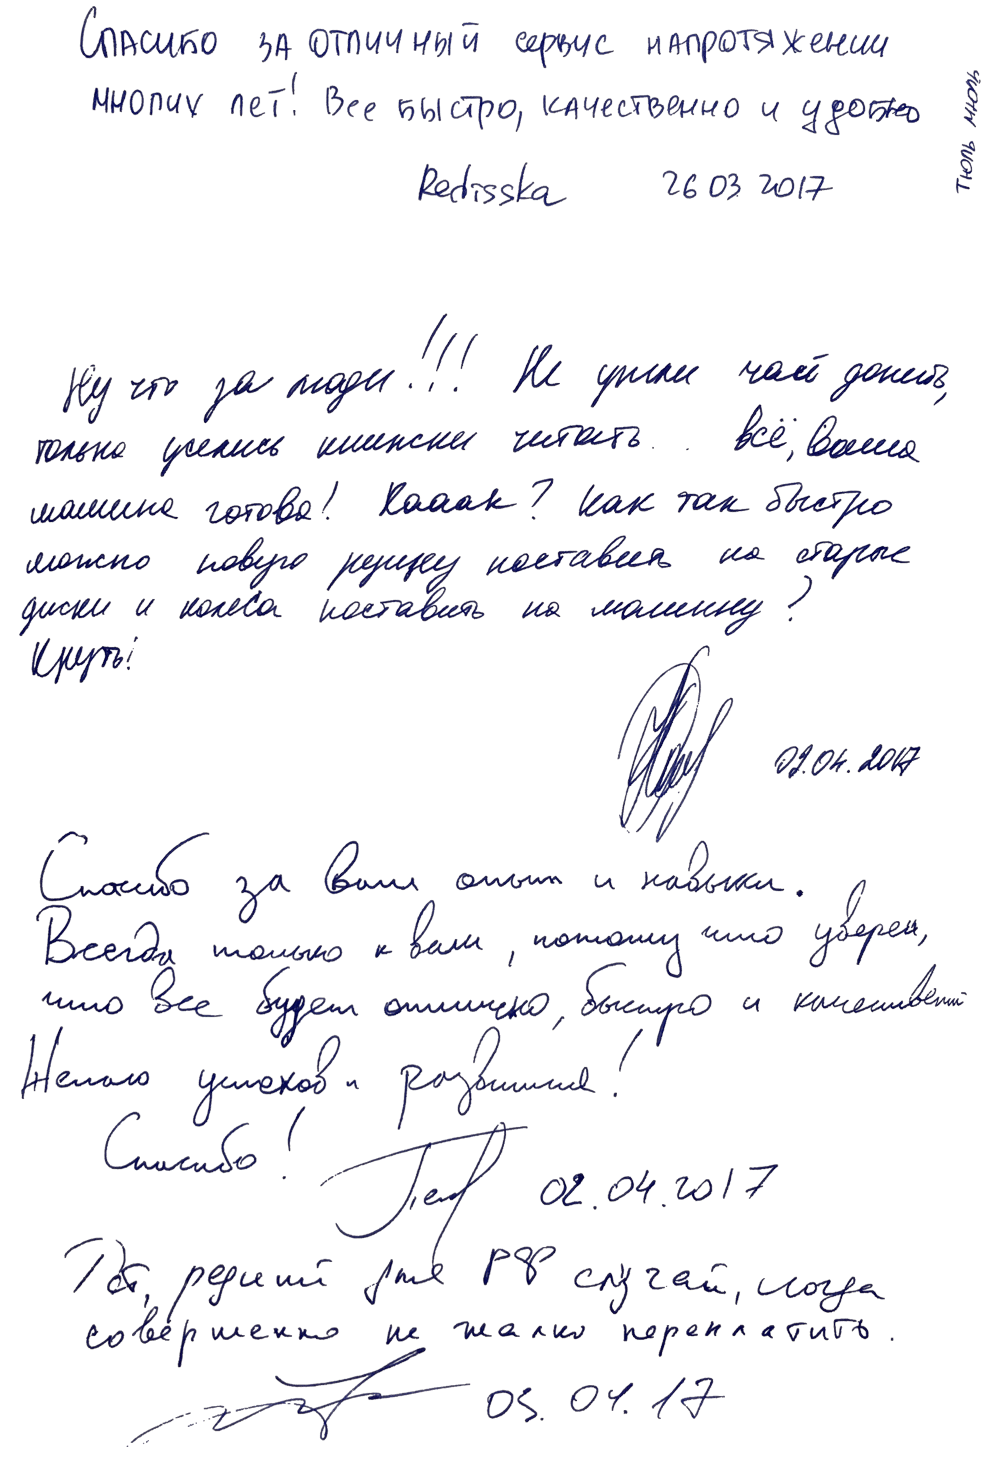 Спасибо за отличный сервис напротяжении
многих лет! Все быстро, качественно и удобно
Redisska 26 03 2017
Тюль мноль
Ну что за люди!!! Не успели чай допить,
только уселись книжки читать... всё, Ваша
машина готова! Кааак? Как так быстро
можно новую резину поставить на старые
диски и колёса поставить на машину?
Круть!
02.04.2017
Спасибо за Ваш опыт и навыки.
Всегда только к вам, потому что уверен,
что все будет отлично, быстро и
Желаю успехов и развития!
Спасибо!
02.04.2017
редкий для РФ случай, когда
совершенно не жалко переплатить.
03.04.17